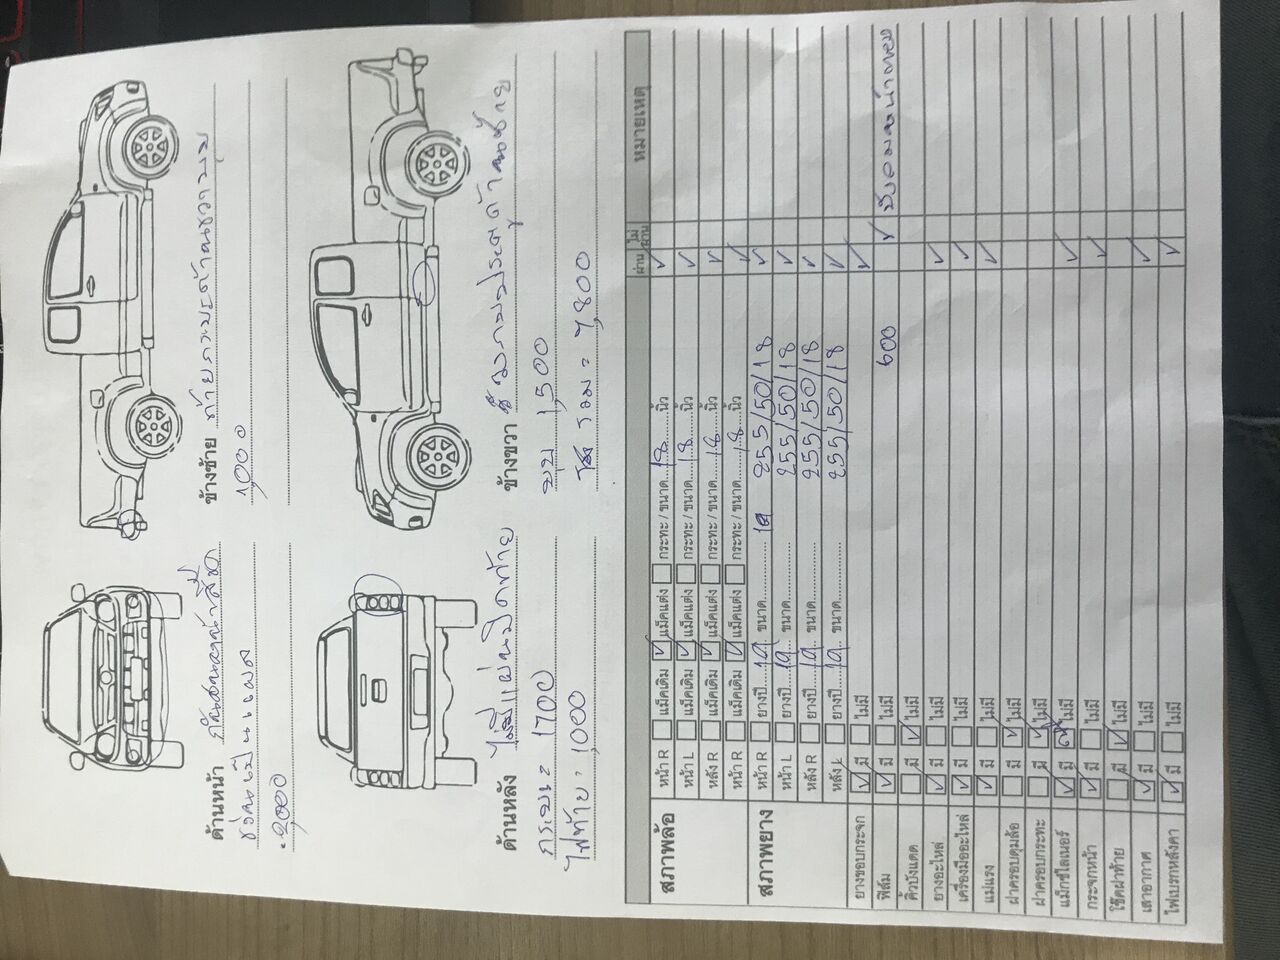 ด้านหน้า กันชนหน้าสีถ
ช่อนเป็นแผล
2,000
ข้างซ้าย ท้ายกระบะด้านขวาบุบ
1,000
ด้านหลัง ไม่มีแผ่นปิดท้าย
กระบะ 1700
ไฟท้าย = 1,000
ข้างขวา ชายประตูด้านซ้าย
บุบ 1,500
รวม = 7,800
ผ่าน ไม่ผ่าน หมายเหตุ
สภาพล้อ
หน้า R แม็คเดิม ✓ แม็คแต่ง กระทะ / ขนาด 18 นิ้ว ✓
หน้า L แม็คเดิม ✓ แม็คแต่ง กระทะ / ขนาด 18 นิ้ว ✓
หลัง R แม็คเดิม ✓ แม็คแต่ง กระทะ / ขนาด 18 นิ้ว ✓
หน้า R แม็คเดิม ✓ แม็คแต่ง กระทะ / ขนาด 18 นิ้ว ✓
สภาพยาง
หน้า R ยางปี 19 ขนาด 255/50/18 ✓
หน้า L ยางปี 19 ขนาด 255/50/18 ✓
หลัง R ยางปี 19 ขนาด 255/50/18 ✓
หลัง L ยางปี 19 ขนาด 255/50/18 ✓
ยางขอบกระจก ✓ มี ไม่มี ✓
ฟิล์ม ✓ มี ไม่มี 600 ✓
คิ้วบังแดด มี ✓ ไม่มี
ยางอะไหล่ ✓ มี ไม่มี ✓
เครื่องมืออะไหล่ ✓ มี ไม่มี ✓
แม่แรง ✓ มี ไม่มี ✓
ฝาครอบดุมล้อ มี ✓ ไม่มี
ฝาครอบกระทะ มี ✓ ไม่มี
แม็กซ์ไลเนอร์ ✓ มี ไม่มี ✓
กระจกหน้า ✓ มี ไม่มี ✓
โช๊คฝาท้าย มี ✓ ไม่มี
เสาอากาศ ✓ มี ไม่มี ✓
ไฟเบรกหลังคา ✓ มี ไม่มี ✓